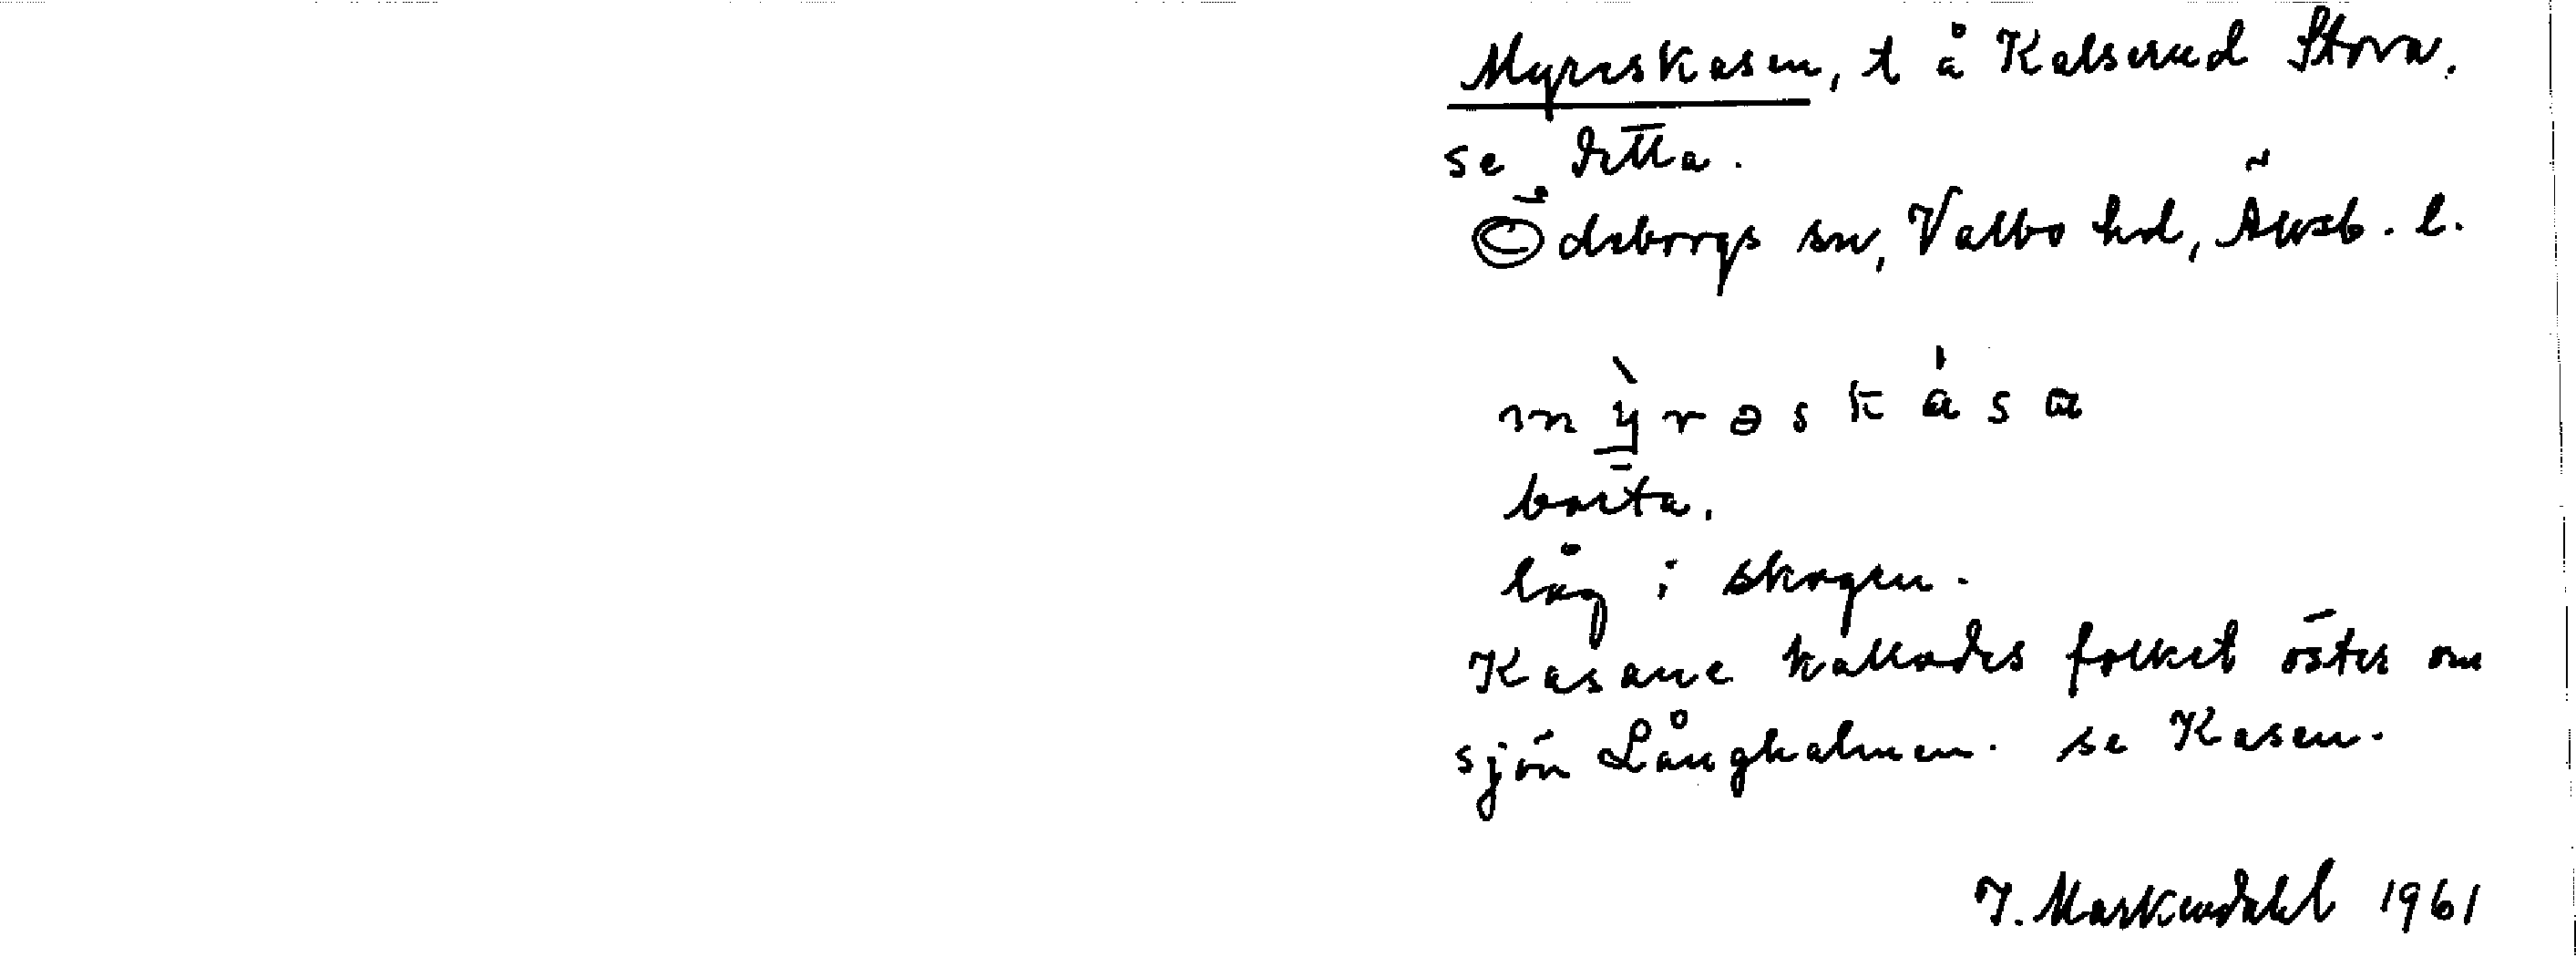 Myreskasen, t å Kalserud Stora.
se detta.
Ödeborgs sn, Valbo hd, Älvsb. l.
mỳrəskása
borta.
låg i skogen.
Kasane kallades folket öster om
sjön Långhalmen. se Kasen.
I. Markendahl 1961